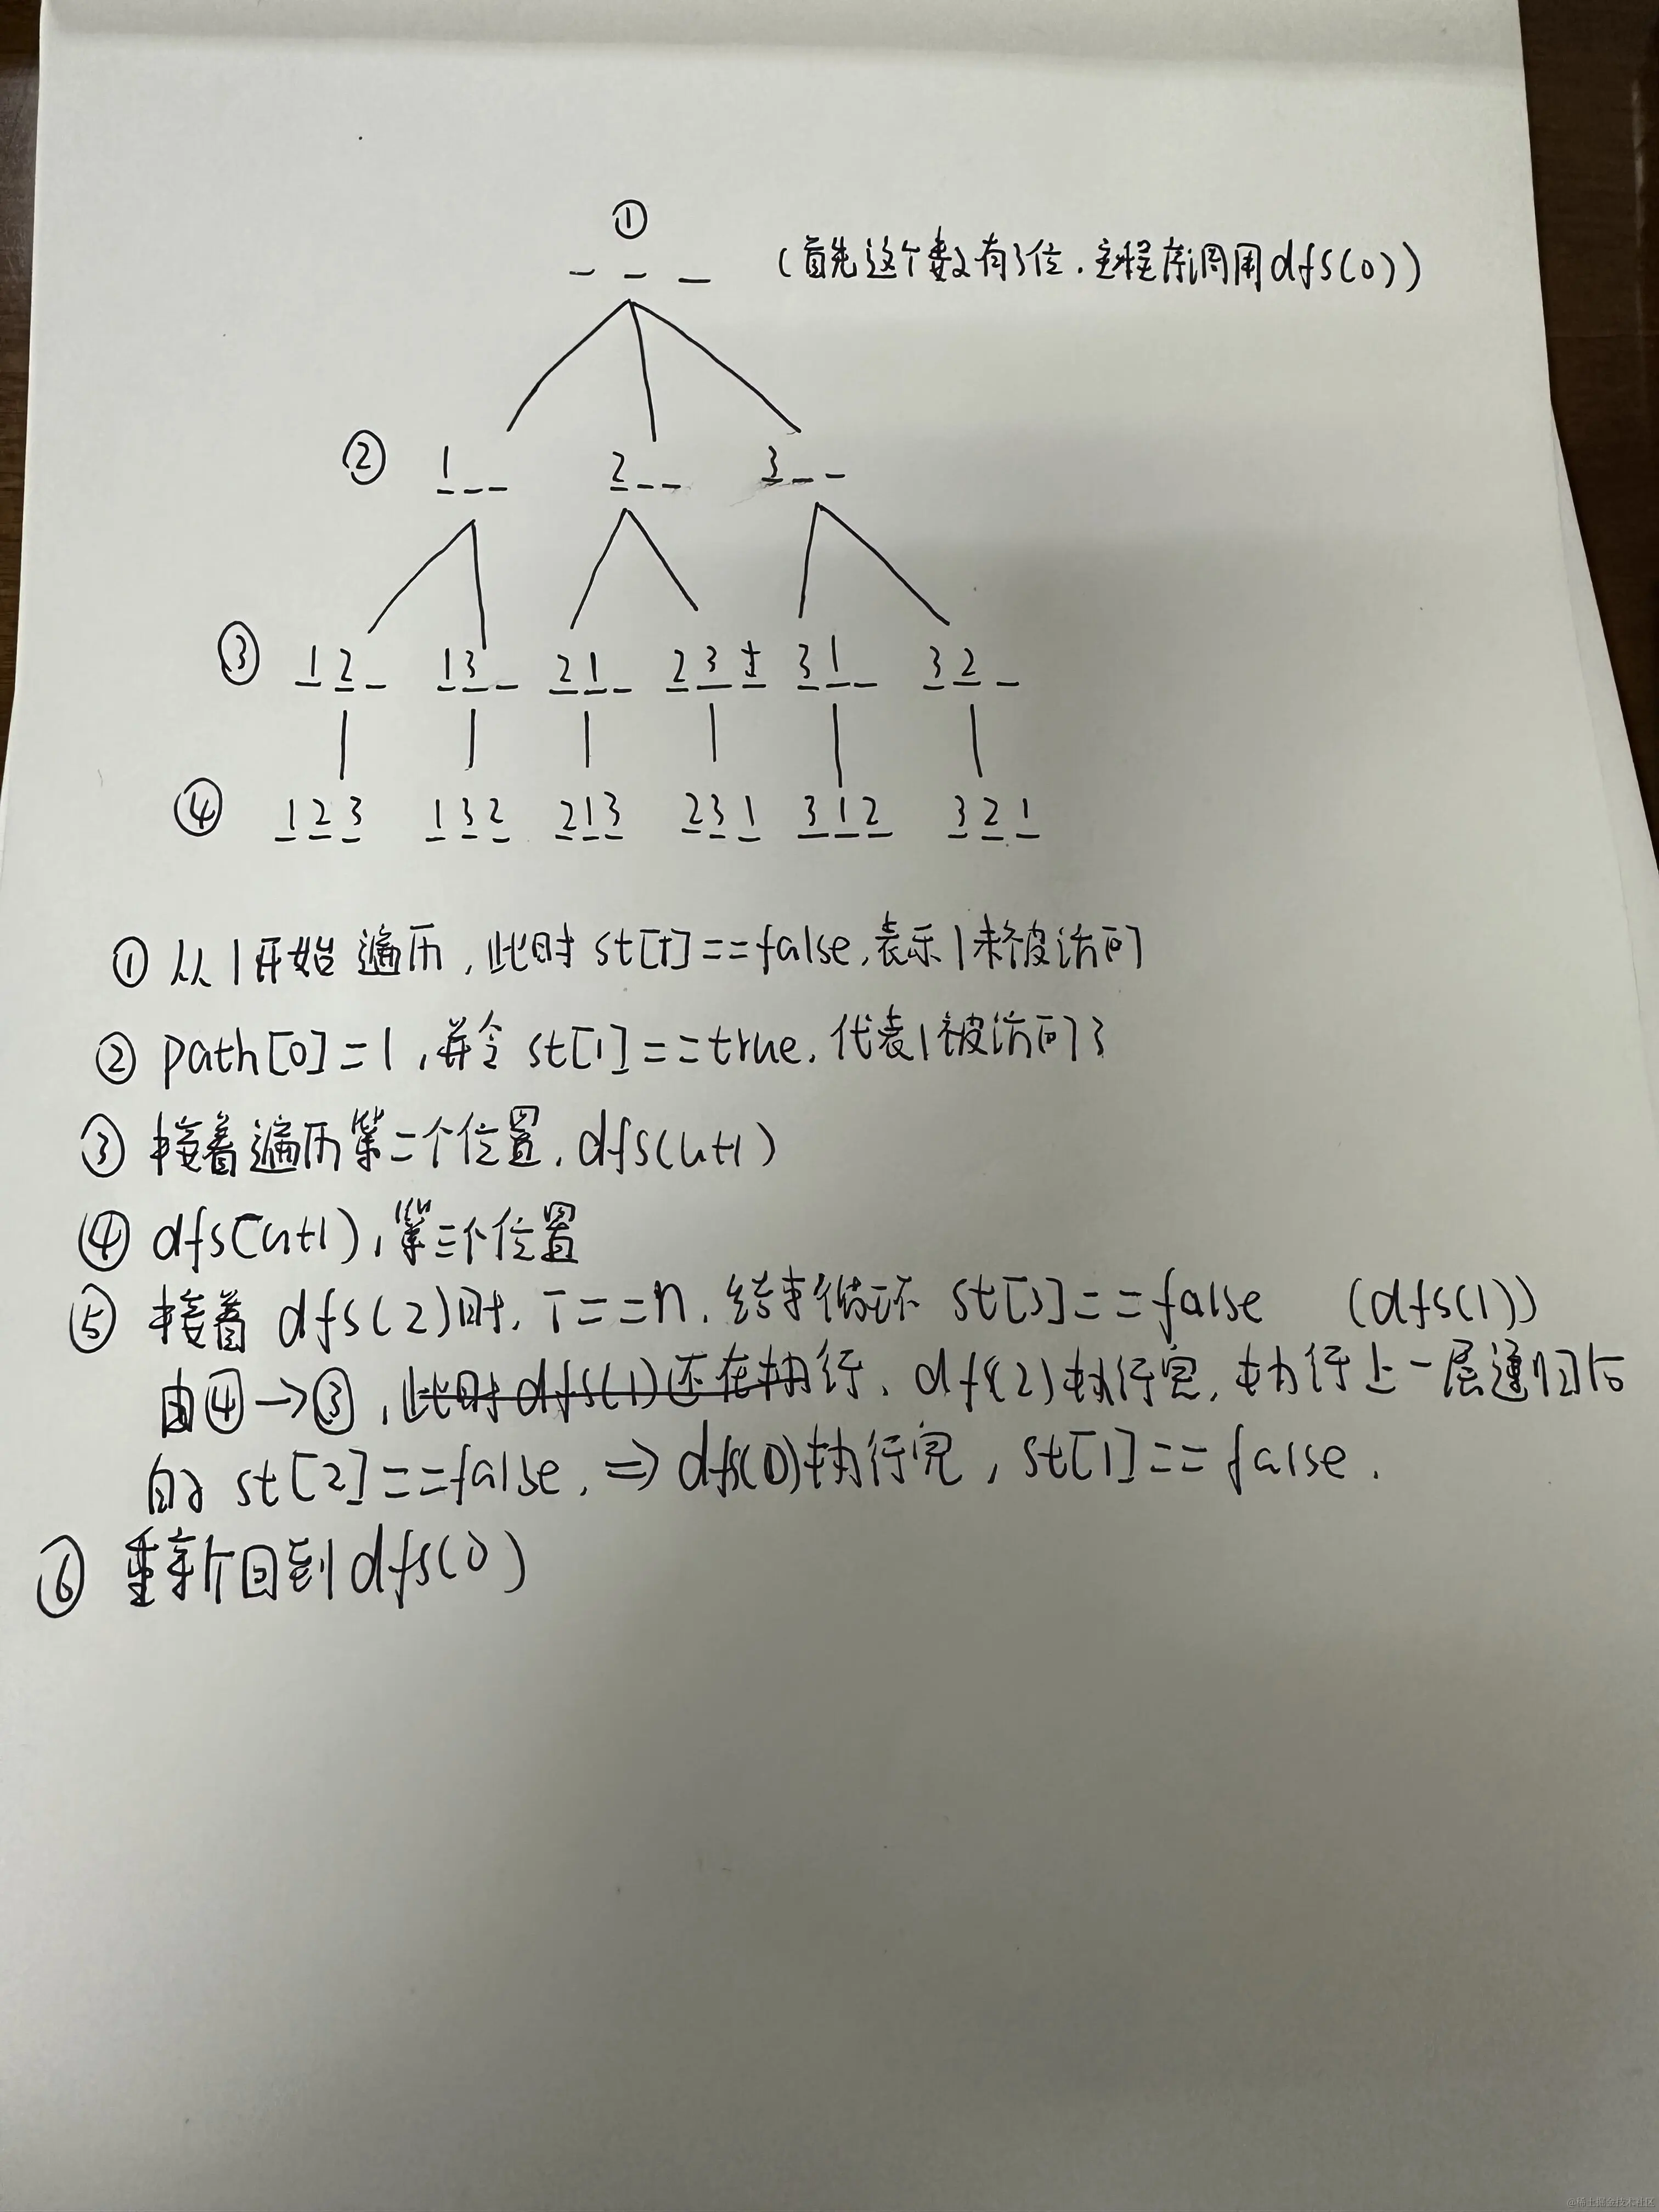 ①
_ _ _ (首先这个数有3位.主程序调用dfs(0))
② 1 _ _ 2 _ _ 3 _ _
③ 1 2 _ 1 3 _ 2 1 _ 2 3 _ 3 1 _ 3 2 _
④ 1 2 3 1 3 2 2 1 3 2 3 1 3 1 2 3 2 1
① 从1开始遍历,此时st[1]==false,表示1未被访问
② path[0]=1,并令st[1]==true,代表1被访问了
③ 接着遍历第二个位置,dfs(u+1)
④ dfs(u+1),第三个位置
⑤ 接着dfs(2)时,i==n.结束循环 st[3]==false (dfs(1))
由④→③,此时dfs(1)还在执行,df(2)执行完,执行上一层递归后
的 st[2]==false,⇒dfs(0)执行完,st[1]==false.
⑥ 重新回到dfs(0)
@稀土掘金技术社区